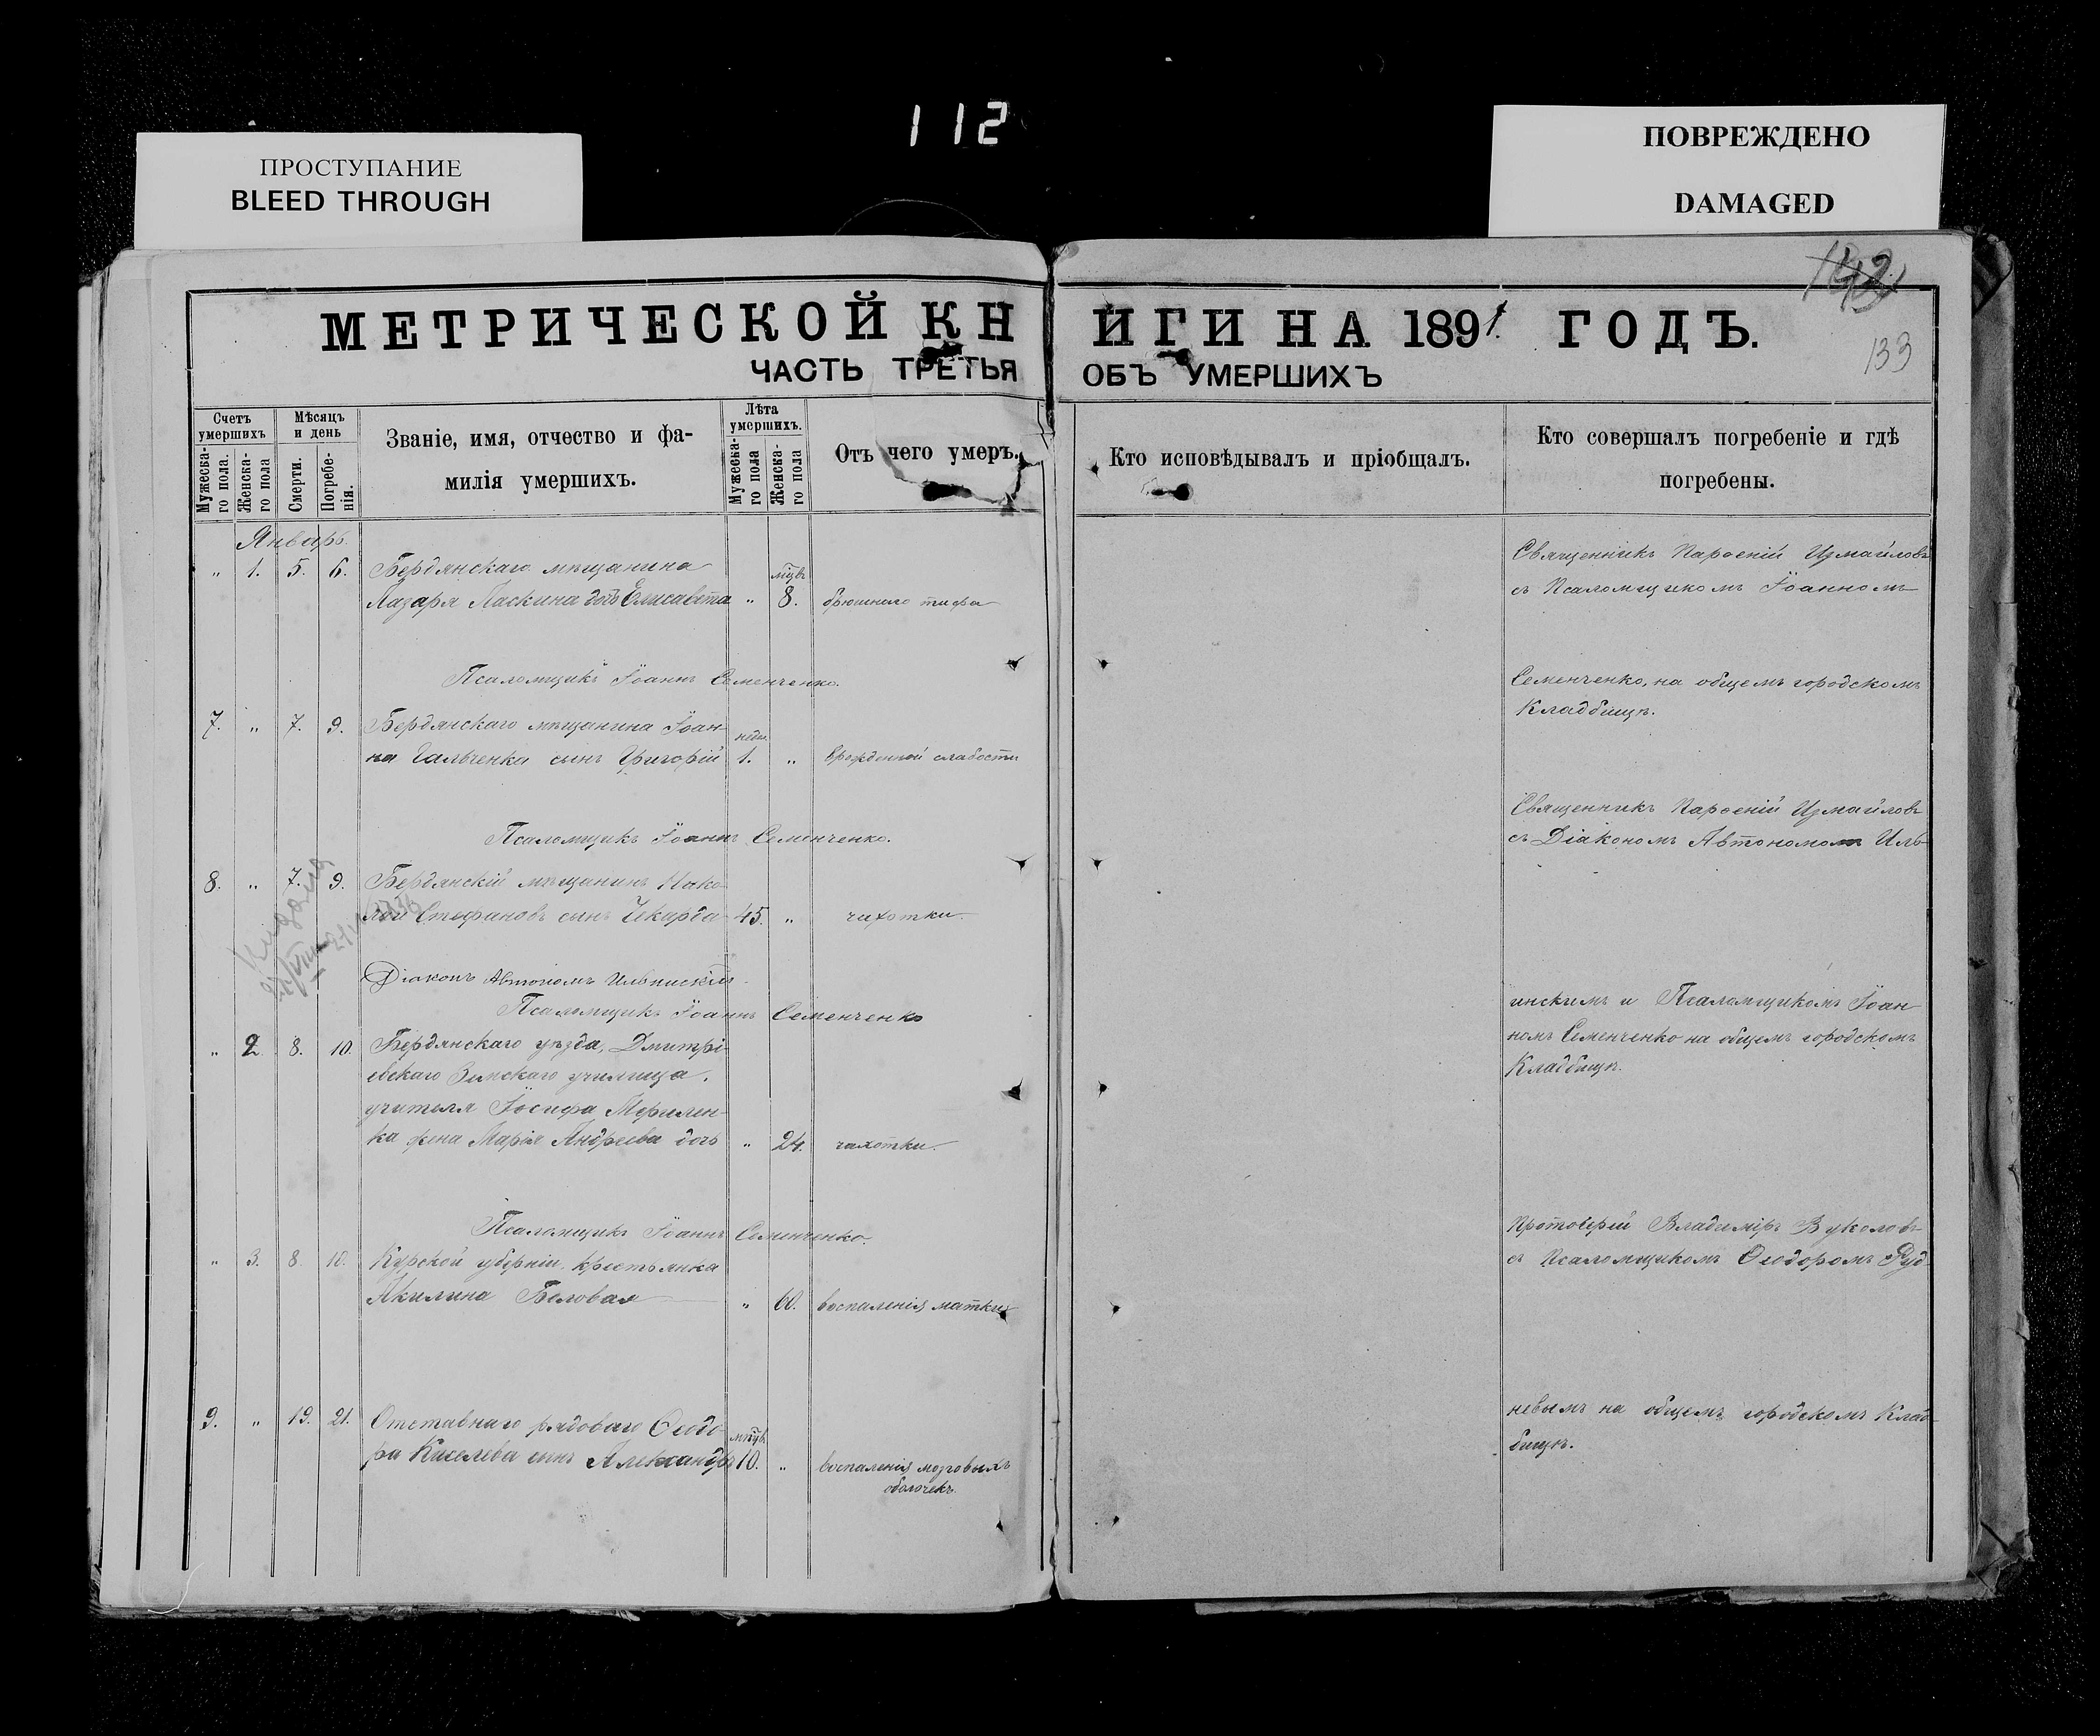 112
ПРОСТУПАНИЕ
BLEED THROUGH
ПОВРЕЖДЕНО
DAMAGED
МЕТРИЧЕСКОЙ КНИГИ НА 1891 ГОДЪ.
133
ЧАСТЬ ТРЕТЬЯ ОБЪ УМЕРШИХЪ
Счетъ умершихъ
Мужеска-го пола.
Женска-го пола
Мѣсяцъ и день
Смерти.
Погребе-нія.
Званіе, имя, отчество и фа-
милія умершихъ.
Лѣта умершихъ.
Мужеска-го пола
Женска-го пола
Отъ чего умеръ.
Кто исповѣдывалъ и пріобщалъ.
Кто совершалъ погребеніе и гдѣ
погребены.
Январь.
„ 1. 5. 6. Бердянскаго мѣщанина
Лазаря Ласкина дочь Елисавета „ 8. брюшнаго тифа
Псаломщикъ Іоаннъ Семенченко.
7. „ 7. 9. Бердянскаго мѣщанина Іоан-
на Гальченка сынъ Григорій 1. „ врожденной слабости
Псаломщикъ Іоаннъ Семенченко.
8. „ 7. 9. Бердянскій мѣщанинъ Нико-
лай Стефановъ сынъ Чекарда 45. „ чахотки.
Діаконъ Автономъ Ильинскій.
Псаломщикъ Іоаннъ Семенченко
„ 2. 8. 10. Бердянскаго уѣзда, Дмитрі-
евскаго Земскаго училища,
учителя Іосифа
ка жена Марія Андреева дочь „ 24. чахотки.
Псаломщикъ Іоаннъ Семенченко.
„ 3. 8. 10. Курской губерніи крестьянка
Акилина Беловая „ 60. воспаленія матки
9. „ 19. 21. Отставнаго рядоваго Ѳеодо-
ра Киселева сынъ Александръ 10. „ воспаленія мозговыхъ
оболочекъ.
Священникъ Парѳеній Измайловъ
съ Псаломщикомъ Іоанномъ
Семенченко, на общемъ городскомъ
Кладбищѣ.
Священникъ Парѳеній Измайловъ
съ Діакономъ Автономомъ Иль-
инскимъ и Псаломщикомъ Іоан-
номъ Семенченко на общемъ городскомъ
Кладбищѣ.
Протоіерей Владиміръ Вуколовъ
съ Псаломщикомъ Ѳеодоромъ Руд-
невымъ на общемъ городскомъ Клад-
бищѣ.